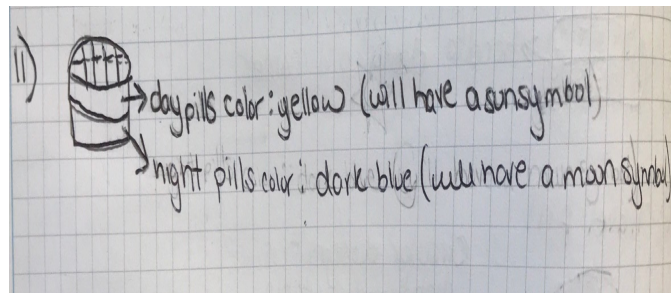 11)
day pills color: yellow (will have a sun symbol)
night pills color: dark blue (will have a moon symbol)